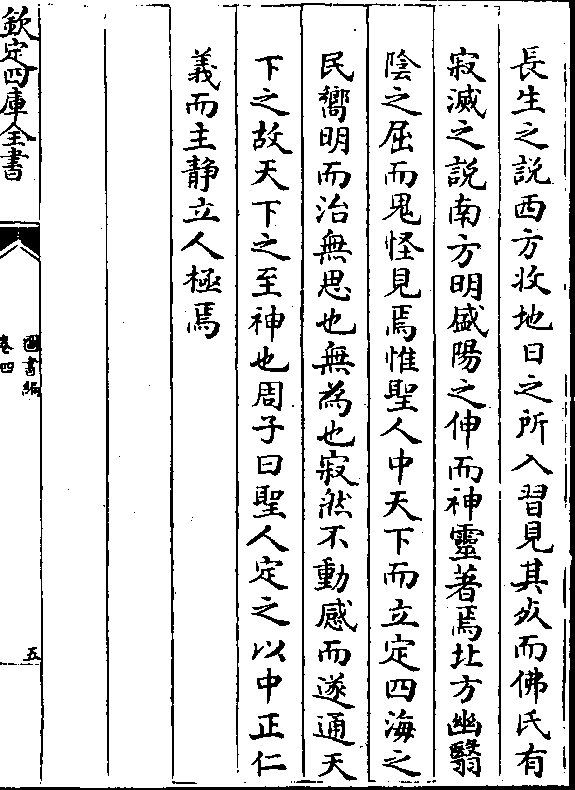 長生之說西方收地日之所入習見其�戍而佛氏有
寂滅之說南方明盛陽之伸而神靈著焉北方幽翳
陰之屈而鬼怪見焉惟聖人中天下而立定四海之
民嚮明而治無思也無為也寂然不動感而遂通天
下之故天下之至神也周子曰聖人定之以中正仁
義而主静立人極焉
欽定四庫全書
圖書編
卷四
五